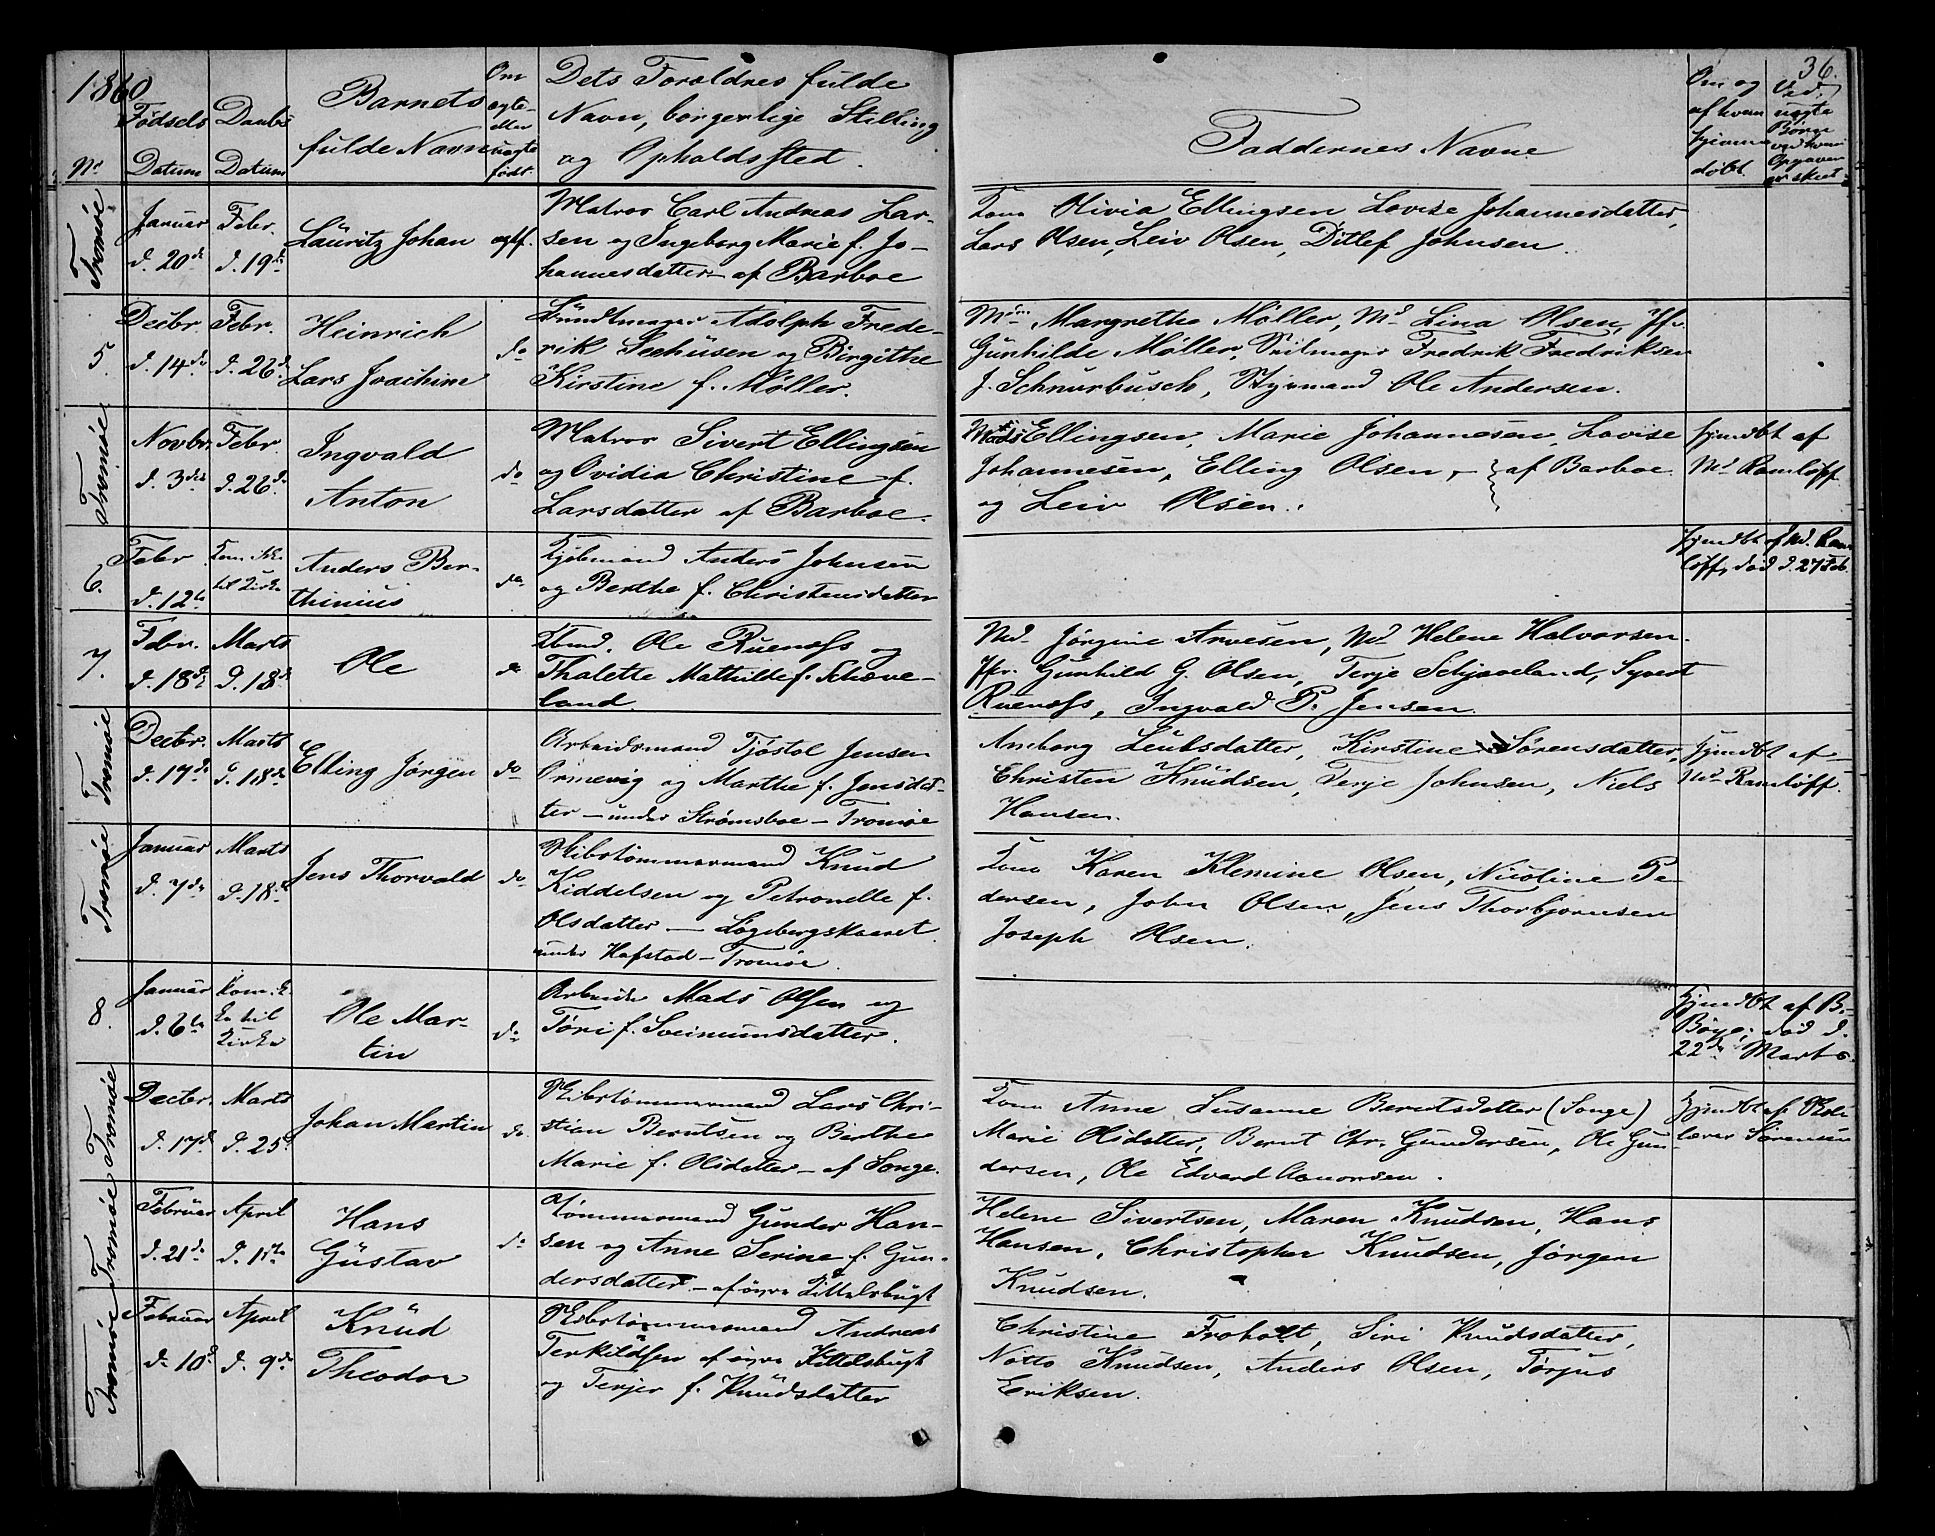 1860
36.
Nr.
Fødsels Datum
Daabs Datum
Barnets fulde Navn
Om ægte eller uægte født.
Dets Forældres fulde
Navn, borgerlige Stilling
og Opholdssted.
Faddernes Navne
Om og af hvem hjemmedøbt
Ved uægte Børn ved hvem Opgaven er skeet
Tromøe
Januar d. 20de
Febr. d. 19de
Lauritz Johan
ægtf.
Matros Carl Andreas Lar-
sen og Ingeborg Marie f. Jo-
hannesdatter af Barboe
Kone Olivia Ellingsen Lovise Johannesdatter,
Lars Olsen, Leiv Olsen, Ditlef Johnsen.
5.
Decbr. d. 14de
Febr. d. 26de
Heinrich
Lars Joachim
do
Bundtmager Adolph Frede-
rik Seehusen og Birgithe
Kirstine f. Møller.
Mdm Margrethe Møller, Md. Lina Olsen, Jfr.
Gunhilde Møller, Seilmager Fredrik Fredriksen
J. Schnurbusch, Styrmand Ole Andersen.
Tromøe
Novbr. d. 3die
Febr. d. 26de
Ingvald
Anton
do
Matros Sivert Ellingsen
og Ovidia Christine f.
Larsdatter af Barboe.
Mads Ellingsen, Marie Johannesen, Lovise
Johannesen, Elling Olsen, – af Barboe
og Leiv Olsen.
hjemdbt af
Md. Ramløff
6.
Febr d. 12te
Kom ikke
til Kirke
Anders Ber-
thinius
do
Kjøbmand Anders Johnsen
og Berthe f. Christensdatter
hjemdbt af Md. Ram
løff, død d. 27 Feb.
7.
Febr. d. 18de
Marts d. 18de
Ole
do
Kbmd. Ole Ruenæss og
Thalette Mathilde f. Schave-
land.
Md. Jørgine Arvesen, Md. Helene Halvorsen.
Jfr. Gunhild G. Olsen, Terje Schjaveland, Syvert
Ruenæss, Ingvald P. Jensen.
Tromøe
Decbr. d. 17de
Marts d. 18de
Elling Jørgen
do
Arbeidsmand Tjøstol Jensen
Ormevig og Marthe f. Jensdat-
ter – under Strømsboe – Tromøe
Aneborg Leubsdatter, Kirstine Sørensdatter,
Christen Knudsen, Terje Johnsen, Niels
Hansen.
hjemdbt af
Md. Ramløff.
Tromøe
Januar d. 7de
Marts d. 18de
Jens Thorvald
do
Skibstømmermand Knud
Kiddelsen og Petronelle f.
Olsdatter – Løgebergskaaret
under Hofstad – Tromøe.
Kone Karen Klemine Olsen, Nicoline Pe-
dersen, John Olsen, Jens Thorbjørnsen
Joseph Olsen.
8.
Januar d. 6te
Kom ik-
ke til
Kirke
Ole Mar-
tin
do
Arbeider Mads Olsen og
Tøri f. Sveinunsdatter.
hjemdbt af B.
Bøye; død d.
22de Marts.
Tromøe
Decbr. d. 17d
Marts d. 25d
Johan Martin
do.
Skibstømmermand Lars Chri-
stian Berntsen og Birthe
Marie f. Olsdatter – af Songe.
Kone Anne Susanne Berntsdatter (Songe)
Marie Olsdatter, Bernt Chr. Gundersen, Ole Gun-
dersen, Ole Edvard Aanonsen.
hjemdbt af Sko-
lærer Sørensen
Tromøe
Februar d. 21de
April d. 1ste
Hans
Gustav
do
Tømmermand Gunder Han-
sen og Anne Serine f. Gun-
dersdatter – af øvre Kittelsbugt
Helene Sivertsen, Maren Knudsen, Hans
Hansen, Christopher Knudsen, Jørgen
Knudsen.
Tromøe
Februar d. 10d
April d. 9de
Knud
Theodor
Skibstømmermand Andreas
Terkildsen af øvre Kittelsbugt
og Terjer f. Knudsdatter
Christine Froholt, Siri Knudsdatter,
Notto Knudsen, Anders Olsen, Tørjus
Eriksen.